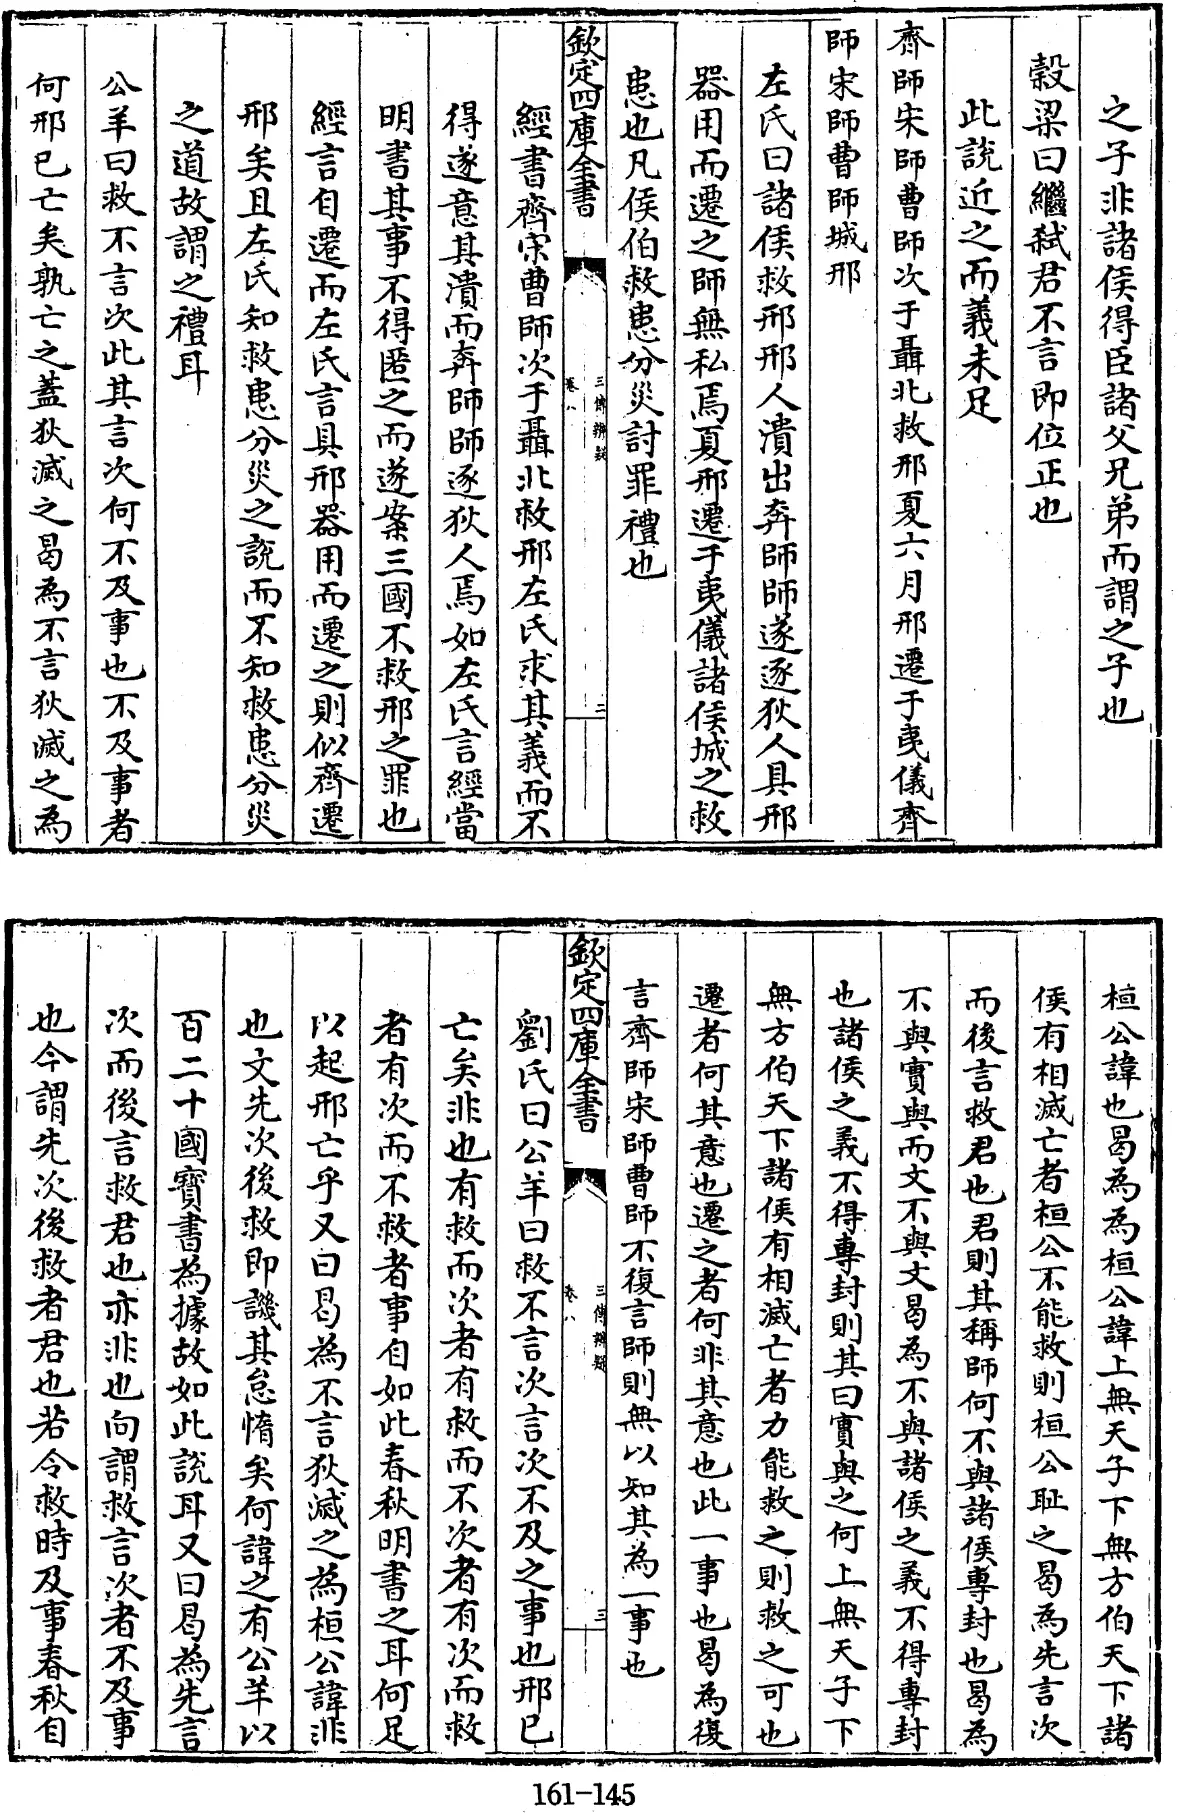 之子非諸侯得臣諸父兄弟而謂之子也
穀梁曰繼弑君不言即位正也
此説近之而義未足
齊師宋師曹師次于聶北救邢夏六月邢遷于夷儀齊
師宋師曹師城邢
左氏曰諸侯救邢邢人潰出奔師師遂逐狄人具邢
器用而遷之師無私焉夏邢遷于夷儀諸侯城之救
患也凡侯伯救患分災討罪禮也
欽定四庫全書
三傳辨疑
卷八
二
經書齊宋曹師次于聶北救邢左氏求其義而不
得遂意其潰而奔師師逐狄人焉如左氏言經當
明書其事不得匿之而遂案三國不救邢之罪也
經言自遷而左氏言具邢器用而遷之則似齊遷
邢矣且左氏知救患分災之説而不知救患分災
之道故謂之禮耳
公羊曰救不言次此其言次何不及事也不及事者
何邢已亡矣孰亡之蓋狄滅之曷為不言狄滅之為
桓公諱也曷為為桓公諱上無天子下無方伯天下諸
侯有相滅亡者桓公不能救則桓公恥之曷為先言次
而後言救君也君則其稱師何不與諸侯專封也曷為
不與實與而文不與文曷為不與諸侯之義不得專封
也諸侯之義不得專封則其曰實與之何上無天子下
無方伯天下諸侯有相滅亡者力能救之則救之可也
遷者何其意也遷之者何非其意也此一事也曷為復
言齊師宋師曹師不復言師則無以知其為一事也
欽定四庫全書
三傳辨疑
卷八
三
劉氏曰公羊曰救不言次言次不及之事也邢已
亡矣非也有救而次者有救而不次者有次而救
者有次而不救者事自如此春秋明書之耳何足
以起邢亡乎又曰曷為不言狄滅之為桓公諱非
也文先次後救即譏其怠惰矣何諱之有公羊以
百二十國寶書為據故如此説耳又曰曷為先言
次而後言救君也亦非也向謂救言次者不及事
也今謂先次後救者君也若令救時及事春秋自
161-145